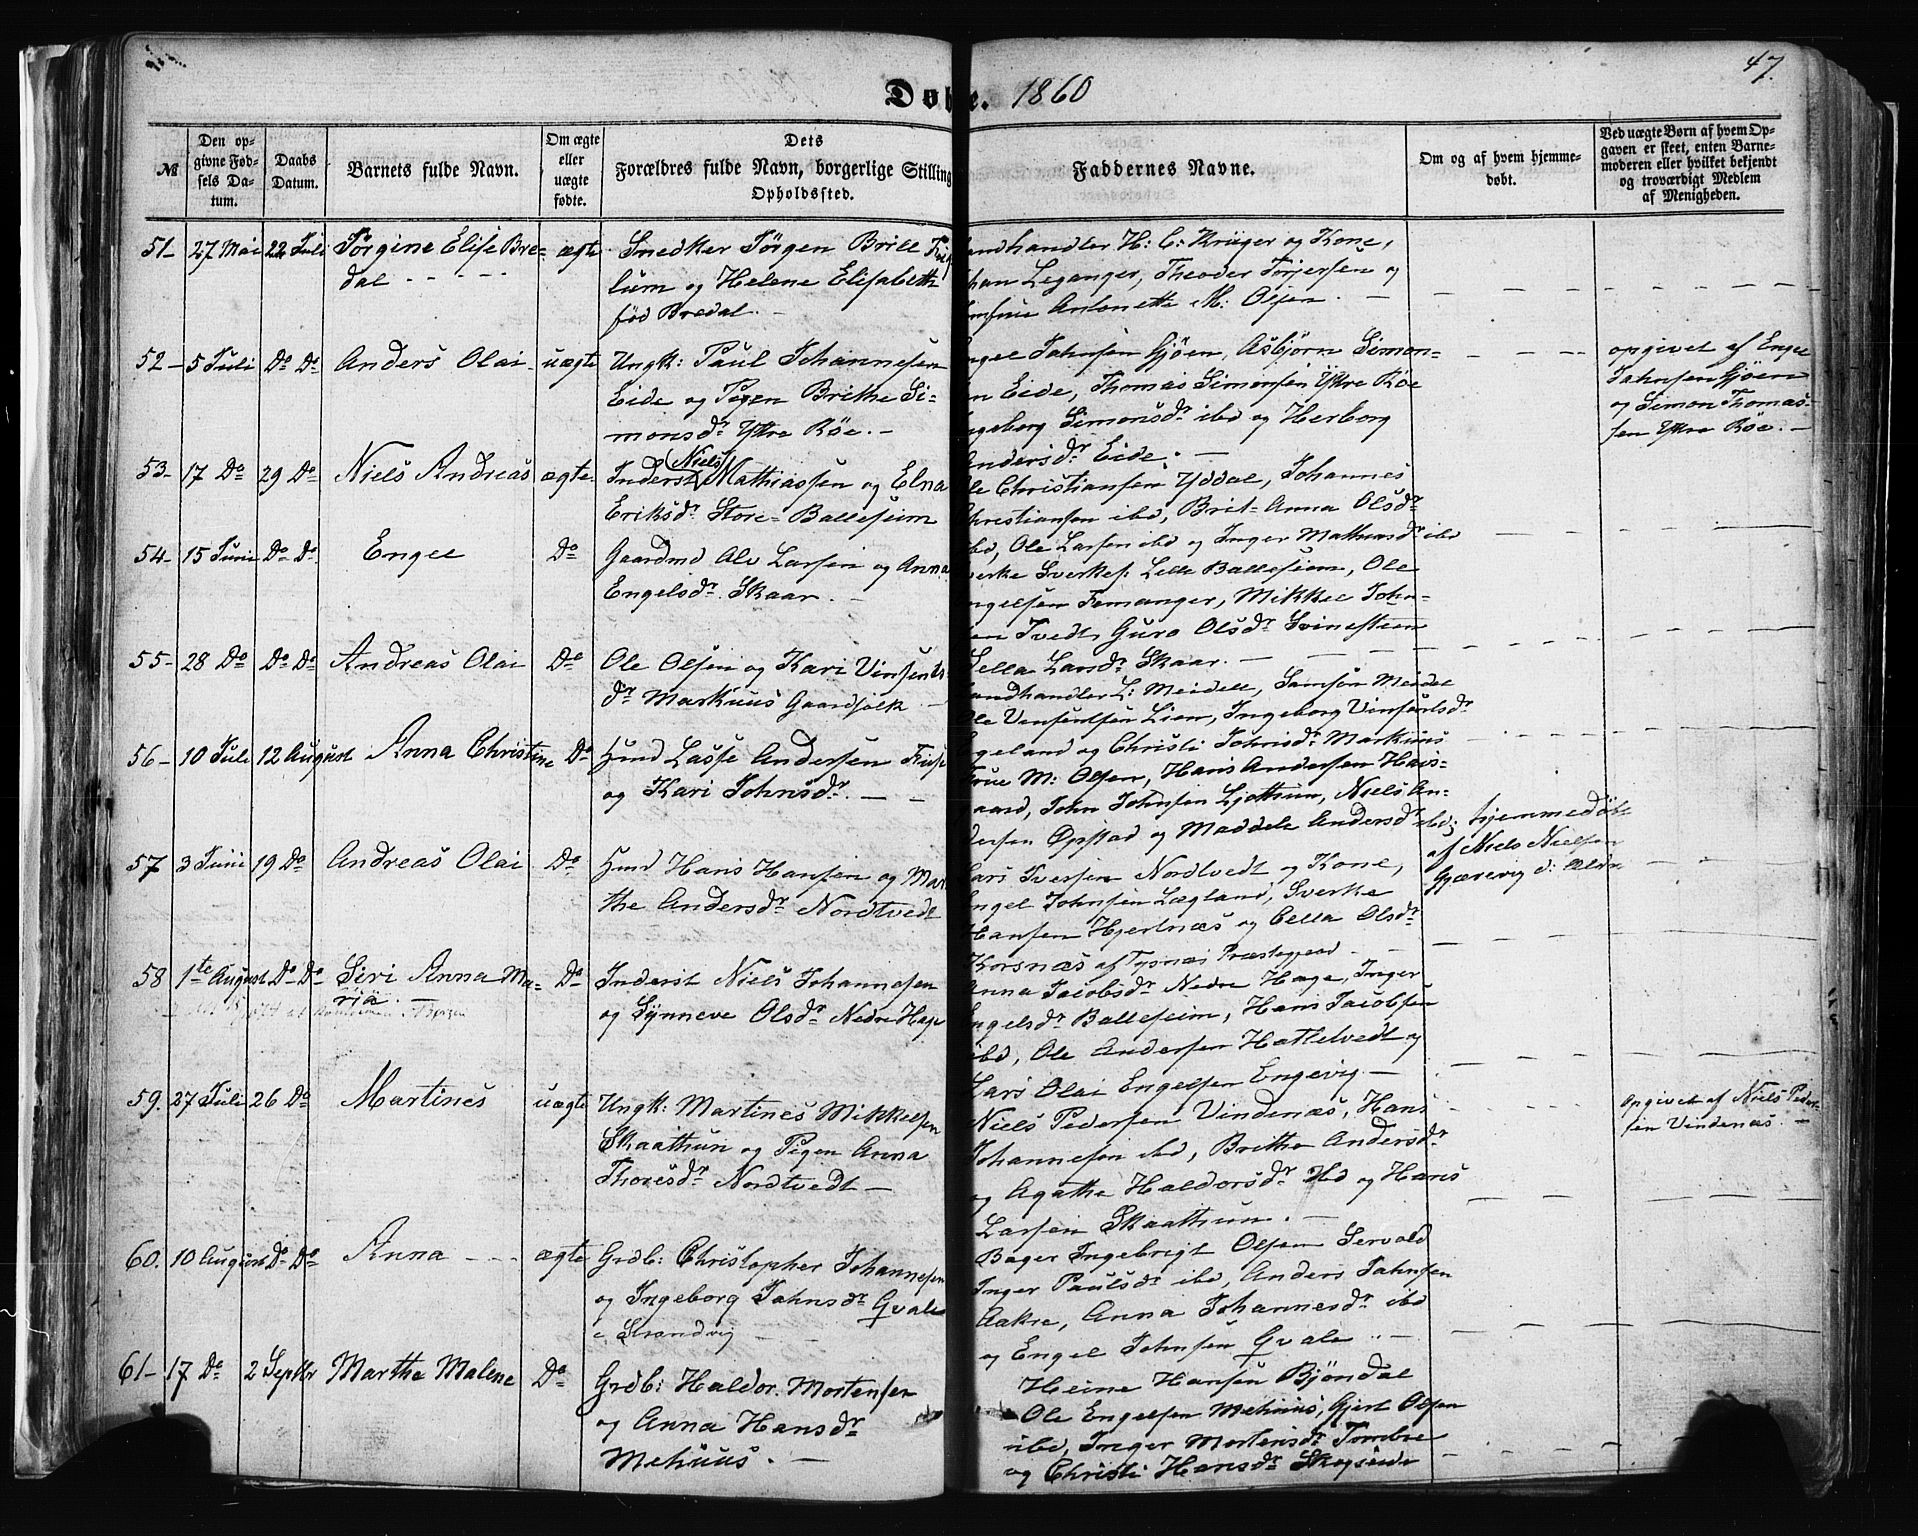 47.
Døbte. 1860
№
Den op-
givne Fød-
sels Da-
tum.
Daabs
Datum.
Barnets fulde Navn.
Om ægte
eller
uægte
fødte.
Dets
Forældres fulde Navn, borgerlige Stilling
Opholdssted.
Faddernes Navne.
Om og af hvem hjemme-
døbt.
Ved uægte Børn af hvem Op-
gaven er skeet, enten Barne-
moderen eller hvilket bekjendt
og troværdigt Medlem
af Menigheden.
51- 27 Mai 22 Juli Jørgine Elise Bre-
dal
ægte
Snedker Jørgen Brill
lum og Helene Elisabeth
fød Bredal. -
andhandler H: C: Krüger og Kone,
han Leganger, Theodor Torjersen og
Antonette M: Olsen. -
52- 5 Juli Do Do Anders Olai uægte
Ungk: Paul Johannesen
Eide og Pigen Brithe Si-
monsdr Ytre Røe. -
ngel Jahnsen Gjøen, Asbjørn Simon-
en Eide, Thomas Simonsen Ytre Røe
ngeborg Simonsdr ibd og Herborg
Andersdr Eide. -
opgivet af Engel
Jahnsen Gjøen
og Simon Thomas-
sen Ytre Røe. -
53- 17 Do 29 Do Niels Andreas ægte
Inderst (Niels) Mathiassen og Elna
Eriksdr Store-Balleseim
le Christiansen Yddal, Johannes
Christiansen ibd, Brit-Anna Olsdr
ibd, Ole Larsen ibd og Inger Mathiasdr ibd
54- 15 Juni Do Do Engel Do
Gaardmd Ole Larsen og Anna
Engelsdr Skaar. -
verke Sverkes: Lille Balleseim, Ole
ngelsen Femanger, Mikkel John-
sen Tvedt, Guro Olsdr Svinesteen
Sella Larsdr Skaar. -
55- 28 Do Do Do Andreas Olai Do
Ole Olsen og Kari Vinsents
dr Markuus Gaardfolk -
andhandler L: Meidell, Samson Meidel
Ole Vinsentsen Lien, Ingeborg Vinsentsdr
geland og Christi Johnsdr Markuus
56- 10 Juli 12 August Anna Christine Do
Huusmd Lasse Andersen
og Kari Johnsdr. - -
Frue M: Olsen, Hans Andersen Hais-
gaard, John Johnsen Ljothun, Niels An-
dersen Opstad og Maddele Andersdr ibd;
hjemmedøbt
af Niels Nielsen
Gjærevig
57 3 Juni 19 Do Andreas Olai Do
Huusmd Hans Hansen og Mar-
the Andersdr Nordtvedt
Lars Iversen Nordtvedt og Kone,
Engel Johnsen Lægland, Sverke
Hansen Hjertnæs og Cella Olsdr
Korsnæs af Tysnæs Præstegjeld
58 1te August Do Do Siri Anna Ma-
ria. -
Do
Inderst Niels Johannesen
og Synneve Olsdr Nedre Hage
Anna Jacobsdr Nedre Hage, Inger
Engelsdr Balleseim, Hans Jacobsen
ibd, Ole Andersen Hattelvedt og
Lars Olai Engelsen Engevig -
59. 27 Juli 26 Do Martines uægte
Ungk: Martines Mikkelsen
Skaathun og Pigen Anna
Thoresdr Nordtvedt -
Niels Pedersen Vindenæs, Hans
Johannesen ibd, Brithe Andersdr
og Agathe Haldorsdr ibd og Hans
Larsen Skaathun. -
Opgivet af Niels Peder-
sen Vindenæs. -
60. 10 August Do Do Anna - - ægte
Grdb: Christopher Johannesen
og Ingeborg Jahnsdr Gvale
i Strandvig -
Bager Ingebrigt Olsen Servold
Inger Paulsdr ibd, Anders Jahnsen
Aakre, Anna Johannesdr ibd
og Engel Johnsen Gvale
61- 17 Do 2 Septbr Marthe Malene Do
Grdb: Haldor Mortensen
og Anna Hansdr
Mehuus. -
Heine Hansen Bjøndal
Ole Engelsen Mehuus, Gjert Olsen
ibd, Inger Mortensdr Tombre
og Christi Hansdr Skogseide